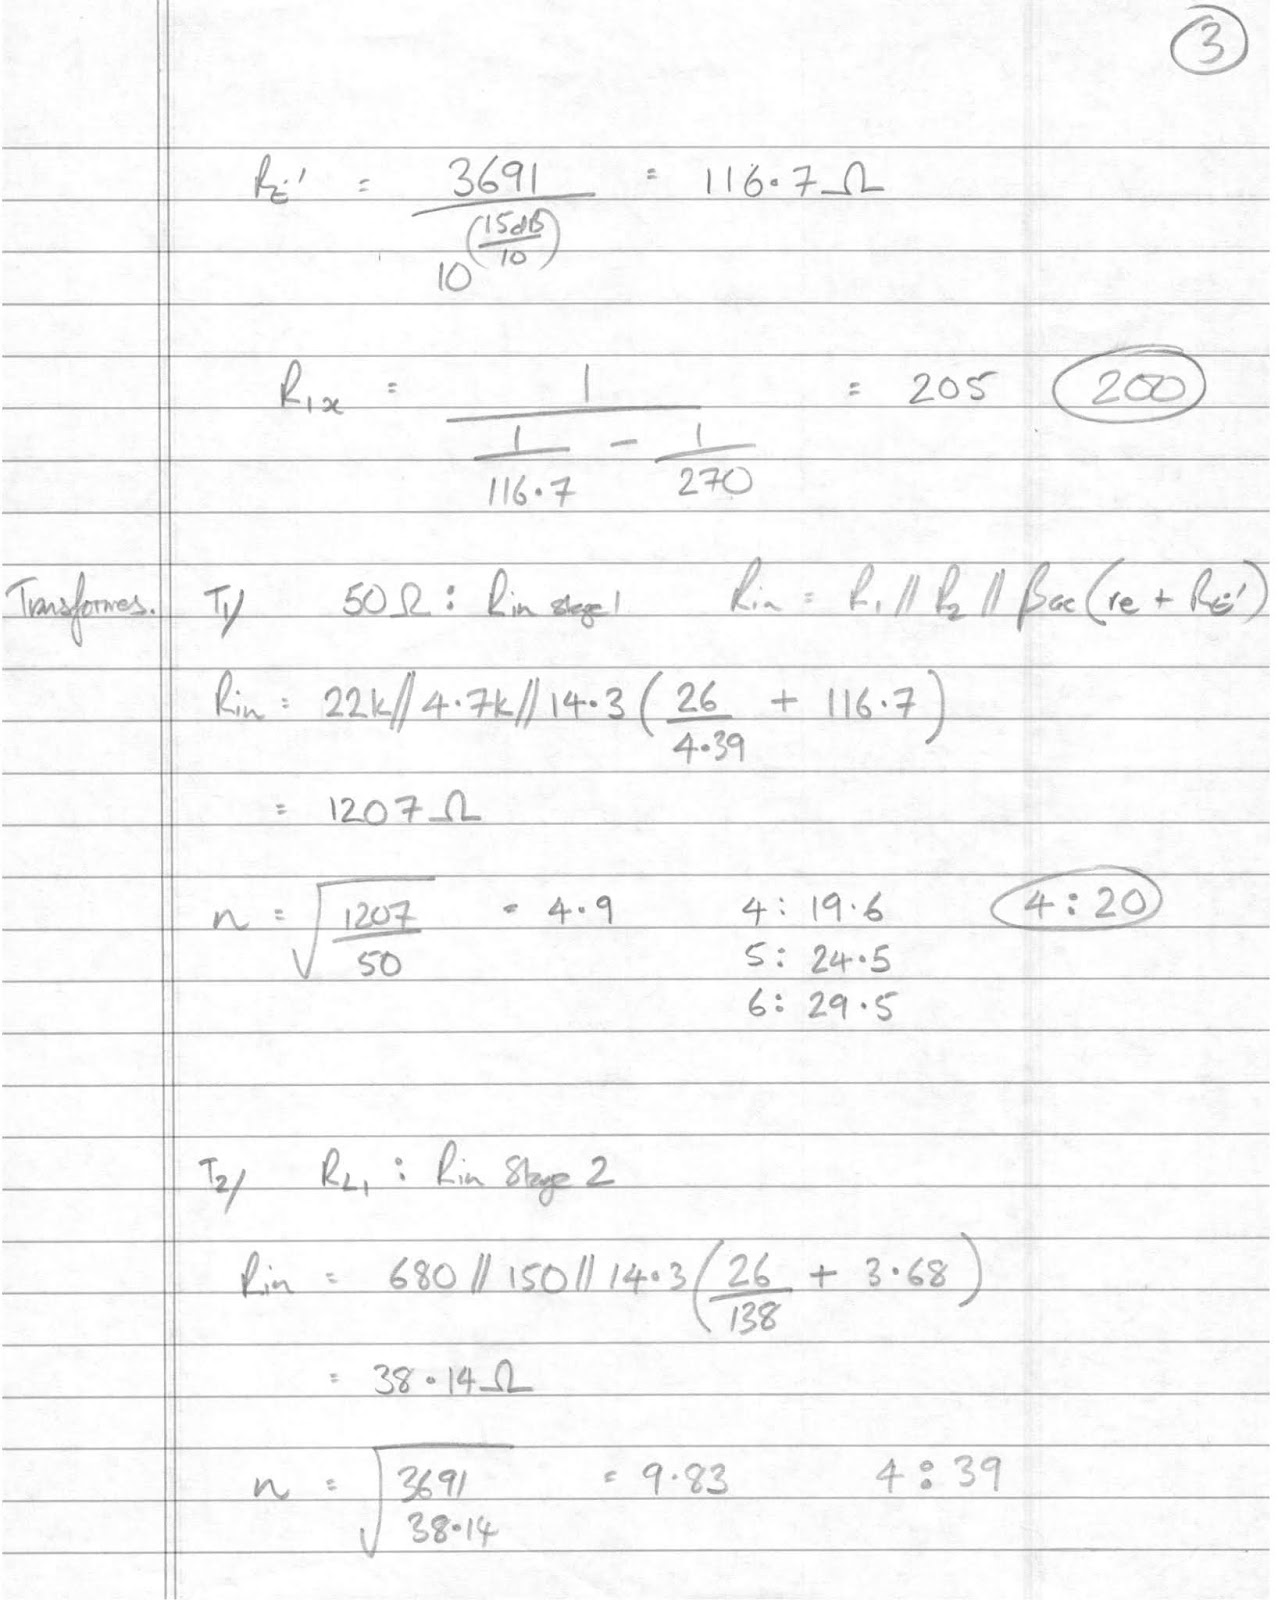 3
RE' = 3691 / 10^(15dB/10) = 116.7Ω
R1x = 1 / (1/116.7 - 1/270) = 205 200
Transformes. T1/ 50Ω : Rin stage 1 Rin = R1 // R2 // βac (re + RE')
Rin = 22k // 4.7k // 14.3 (26/4.39 + 116.7)
= 1207Ω
n = √(1207/50) = 4.9 4 : 19.6 4 : 20
5 : 24.5
6 : 29.5
T2/ RL1 : Rin Stage 2
Rin = 680 // 150 // 14.3 (26/138 + 3.68)
= 38.14Ω
n = √(3691/38.14) = 9.83 4 : 39